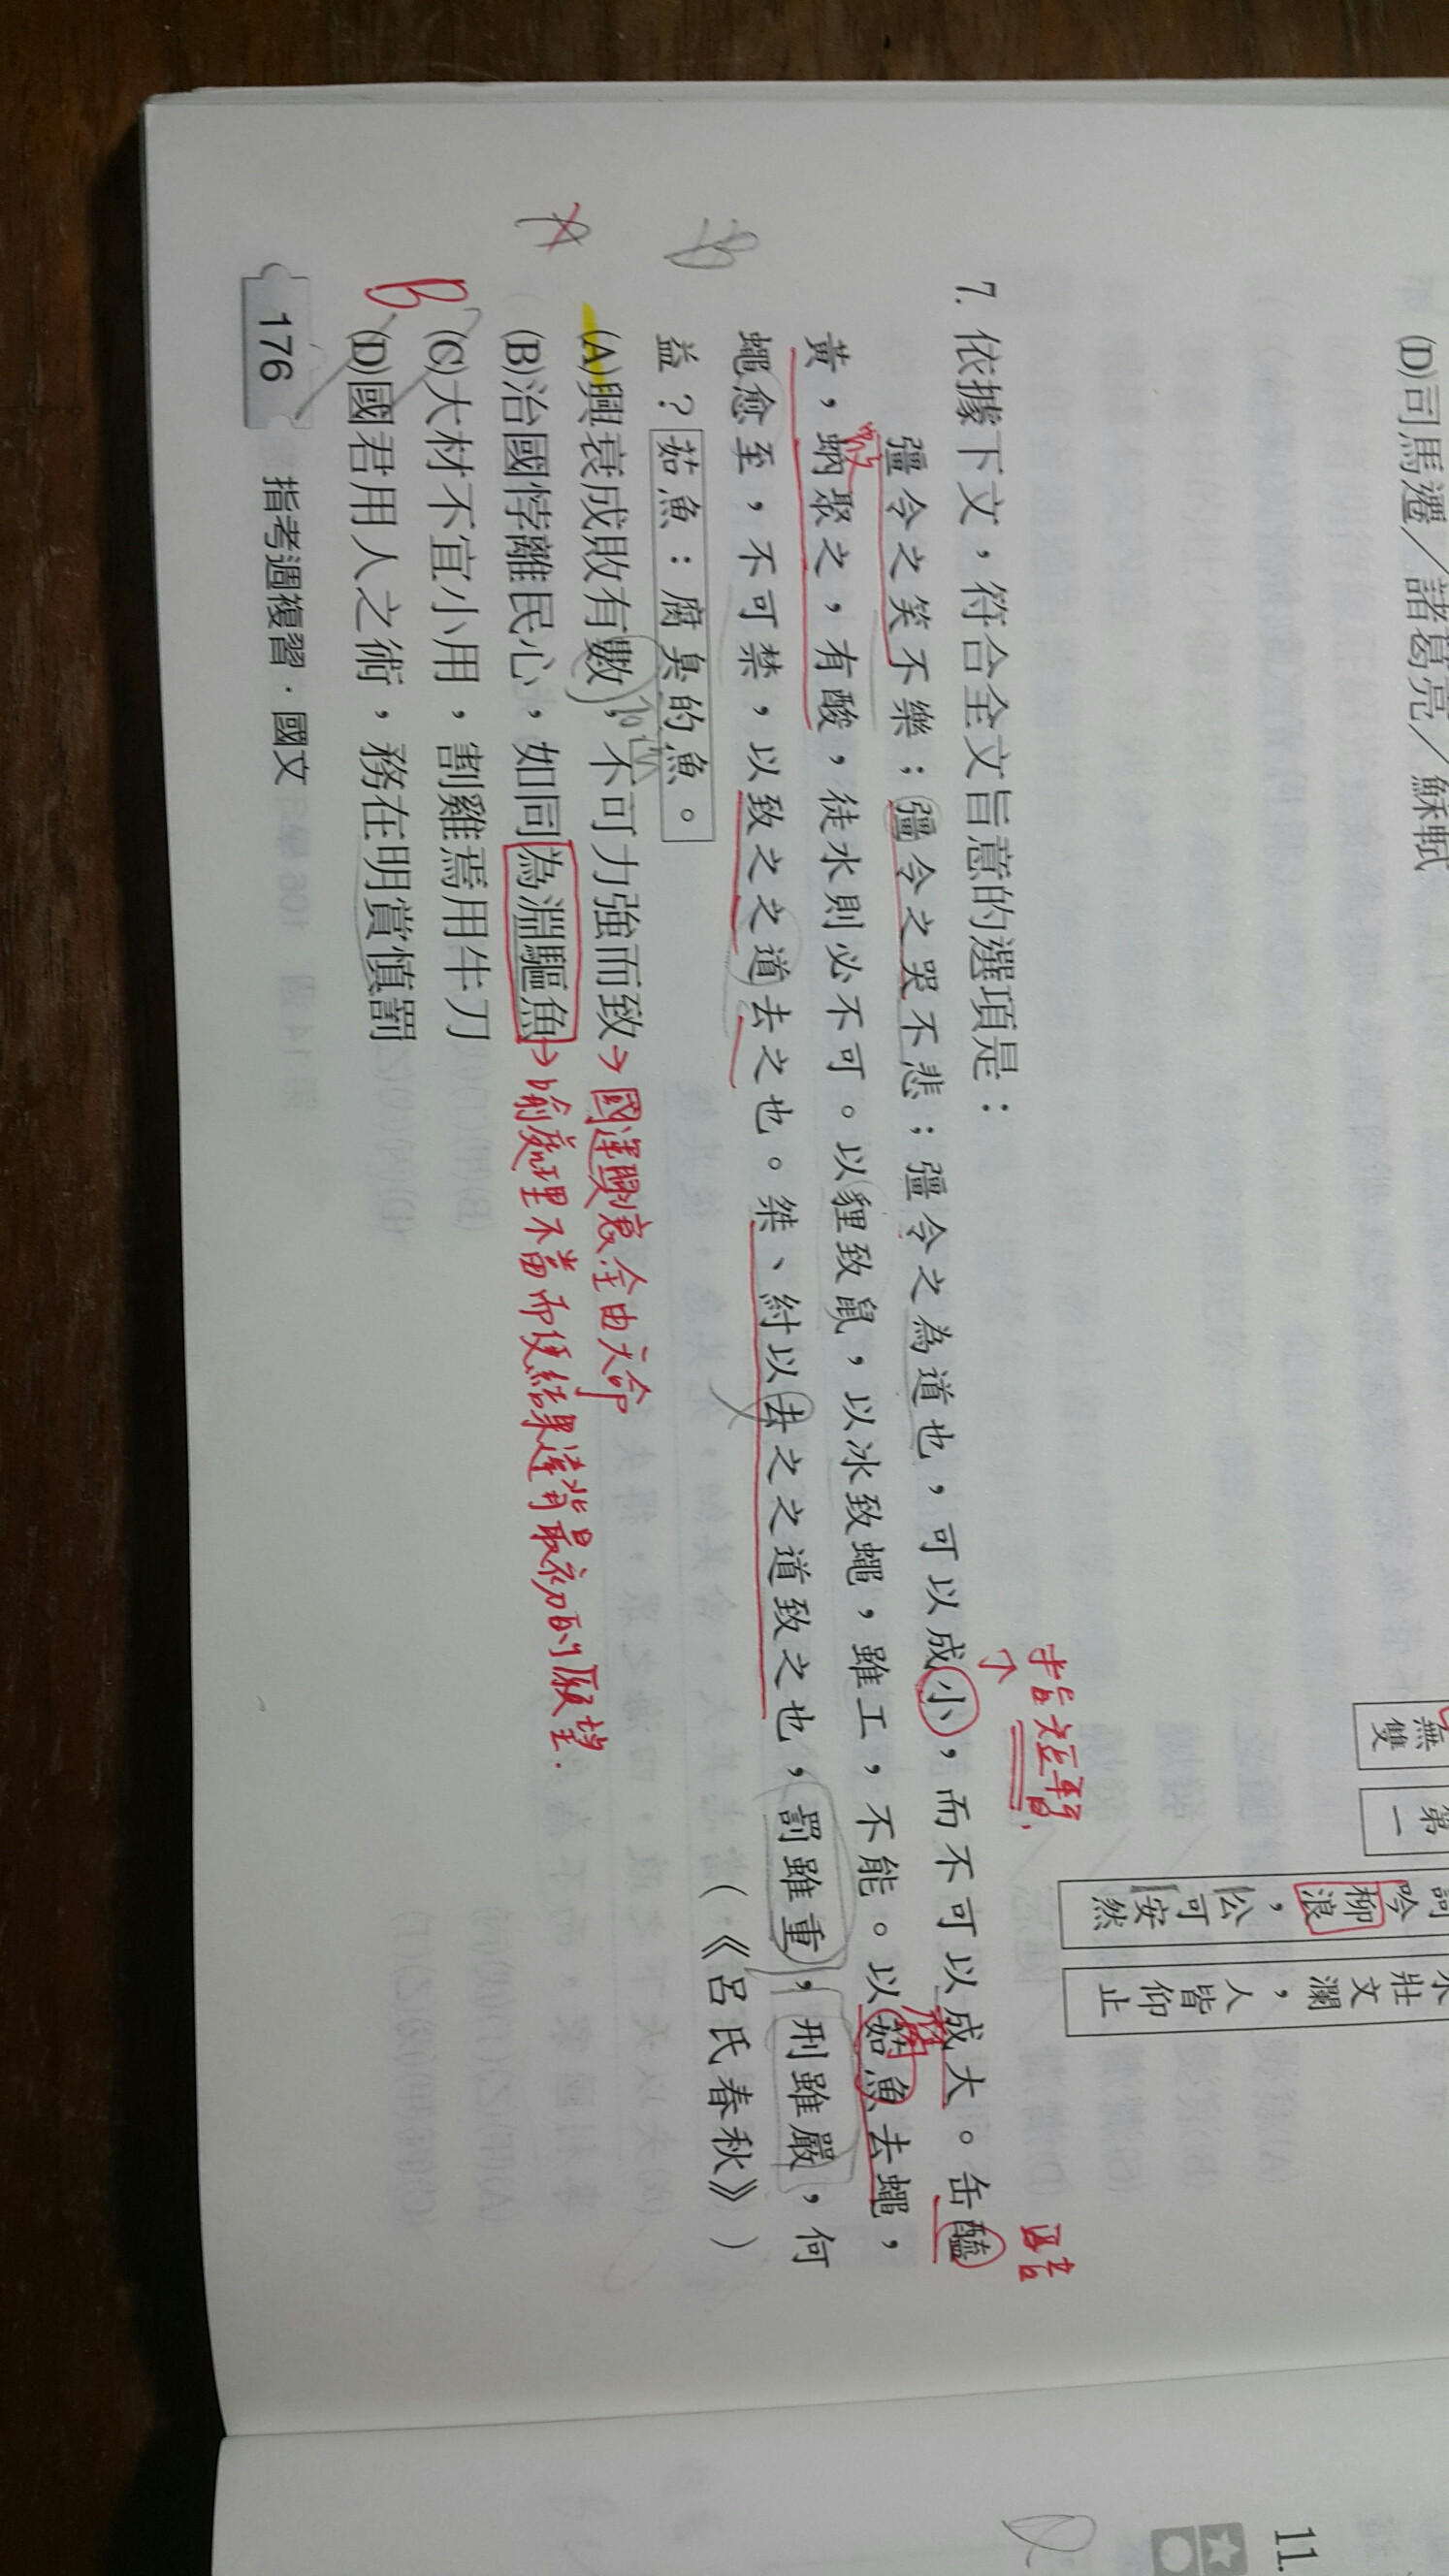 (D)司馬遷／諸葛亮／蘇軾
無雙
第一
柳浪
，公可安然
壯文瀾，人皆仰止
7. 依據下文，符合全文旨意的選項是：
指短暫，
彊令之笑不樂；彊令之哭不悲；彊令之為道也，可以成小，而不可以成大。缶醯
黃，蚋聚之，有酸，徒水則必不可。以貍致鼠，以冰致蠅，雖工，不能。以茹魚去蠅，
蠅愈至，不可禁，以致之之道去之也。桀、紂以去之之道致之也，罰雖重，刑雖嚴，何
益？茹魚：腐臭的魚。
（《呂氏春秋》）
(A)興衰成敗有數，不可力強而致→國運興衰全由天命
(B)治國悖離民心，如同為淵驅魚→喻處理不當而使結果違背最初的願望.
(C)大材不宜小用，割雞焉用牛刀
(D)國君用人之術，務在明賞慎罰
B
176 指考週複習．國文
11.